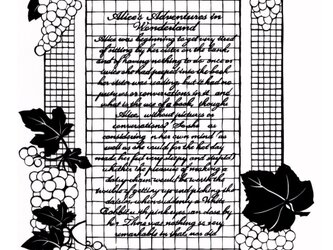 Alice's Adventures in
Wonderland
Alice was beginning to get very tired
of sitting by her sister on the bank,
and of having nothing to do: once or
twice she had peeped into the book
her sister was reading, but it had no
pictures or conversations in it, and
what is the use of a book, thought
Alice, without pictures or
conversations? So she is
considering in her own mind as
well as she could for the hot day
made her feel very sleepy and stupid
whether the pleasure of making a
daisy chain would be worth the
trouble of getting up and picking the
daisies, when suddenly a White
Rabbit with pink eyes ran close by
her. There was nothing so very
remarkable in that, nor did